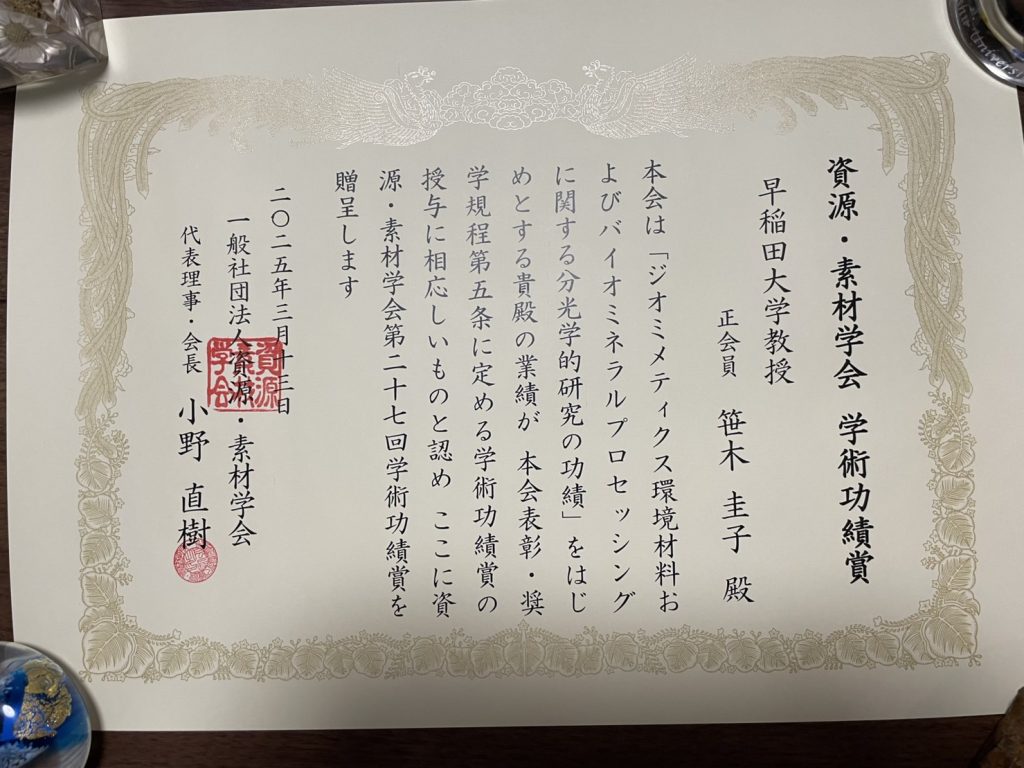 資源・素材学会 学術功績賞
早稲田大学教授
正会員 笹木 圭子 殿
本会は「ジオミメティクス環境材料お
よびバイオミネラルプロセッシング
に関する分光学的研究の功績」をはじ
めとする貴殿の業績が 本会表彰・奨
学規程第五条に定める学術功績賞の
授与に相応しいものと認め ここに資
源・素材学会第二十七回学術功績賞を
贈呈します
二〇二五年三月十三日
一般社団法人資源・素材学会
代表理事・会長 小野 直樹
資源
素材
学会